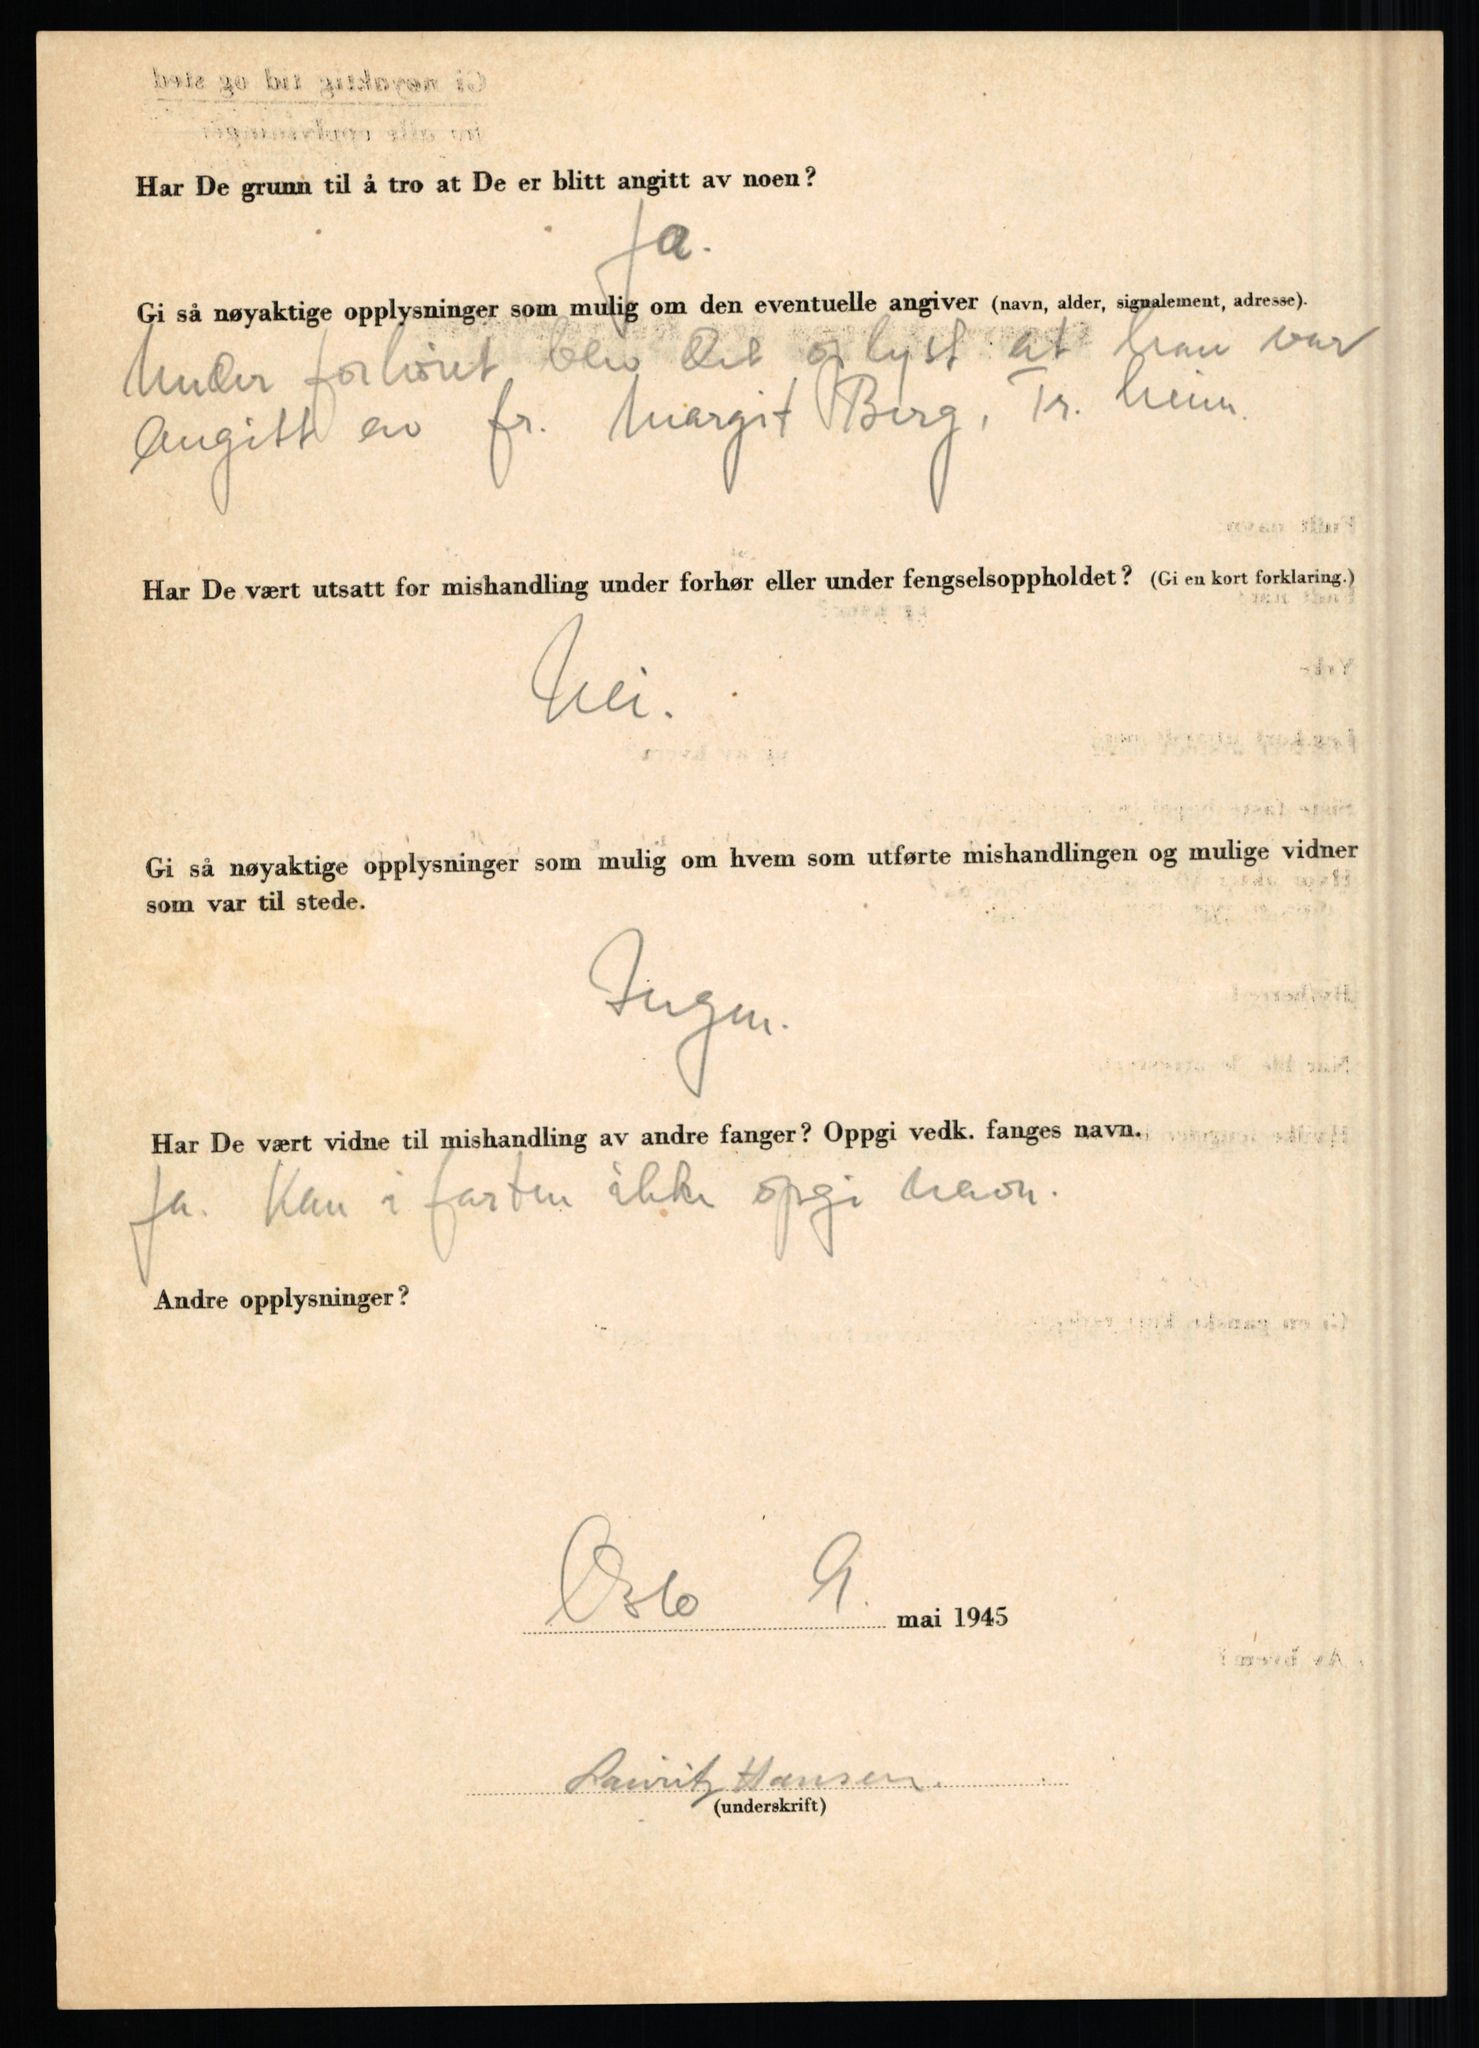 Har De grunn til å tro at De er blitt angitt av noen?
Ja.
Gi så nøyaktige opplysninger som mulig om den eventuelle angiver (navn, alder, signalement, adresse).
Under forhöret blev det oplyst at han var
angitt av fr. Margit Berg, Tr. heim.
Har De vært utsatt for mishandling under forhør eller under fengselsoppholdet? (Gi en kort forklaring.)
Nei.
Gi så nøyaktige opplysninger som mulig om hvem som utførte mishandlingen og mulige vidner
som var til stede.
Ingen.
Har De vært vidne til mishandling av andre fanger? Oppgi vedk. fanges navn.
Ja. Kan i farten ikke opgi navn.
Andre opplysninger?
Oslo 9. mai 1945
Lauritz Hansen.
(underskrift)